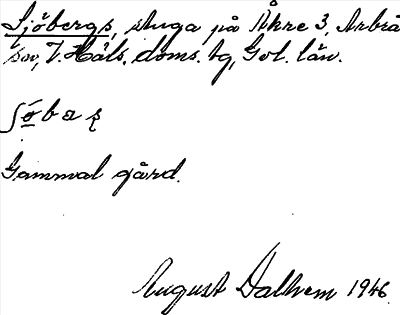 Sjöbergs, stuga på Åkre 3, Arbrå
sn, V. Häls. doms. tg, Gvl. län.
Gammal gård.
August Dalhem 1946.